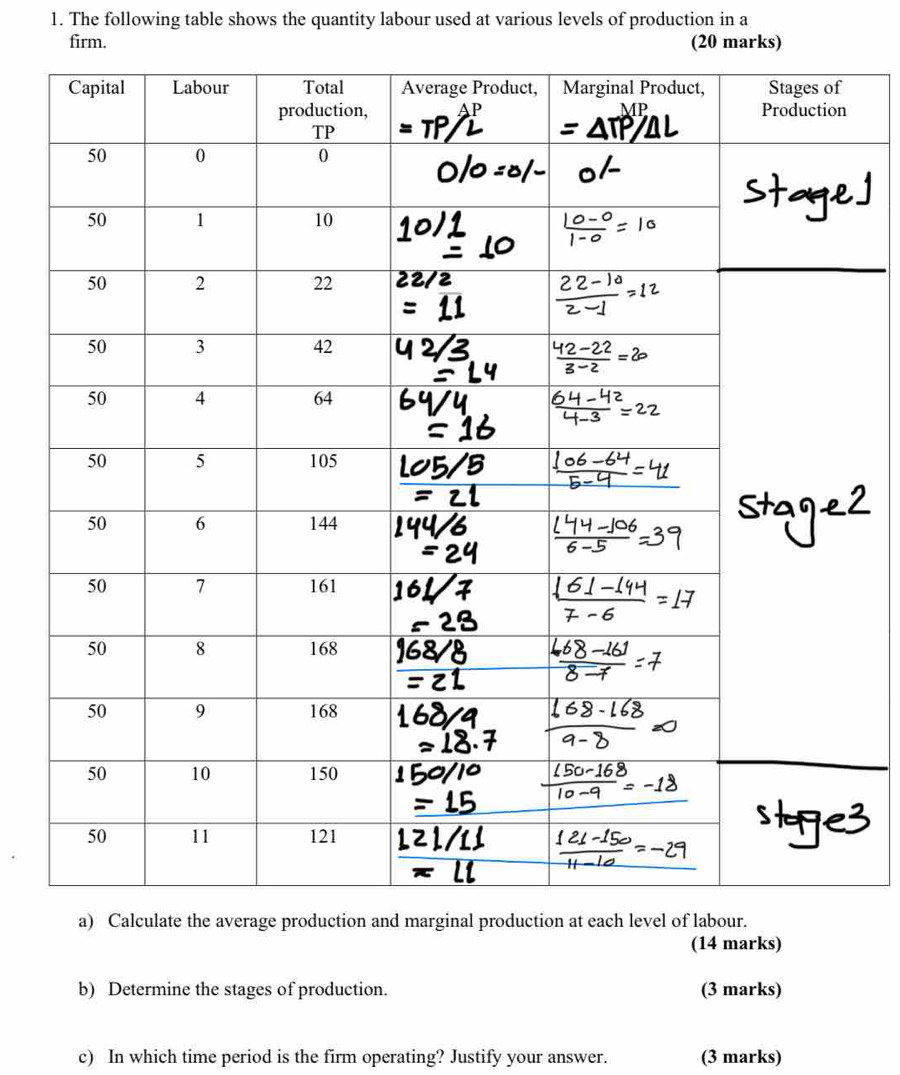 1. The following table shows the quantity labour used at various levels of production in a
firm. (20 marks)
Capital Labour Total production, TP Average Product, AP = TP/L Marginal Product, MP = ΔTP/ΔL Stages of Production
50 0 0 0/0 =0/- 0/-
Stage1
50 1 10 10/1 = 10 10-0/1-0 = 10
50 2 22 22/2 = 11 22-10/2-1 =12
50 3 42 42/3 = 14 42-22/3-2 =20
50 4 64 64/4 = 16 64-42/4-3 =22
50 5 105 105/5 = 21 106-64/5-4 =41
Stage2
50 6 144 144/6 =24 144-106/6-5 =39
50 7 161 161/7 = 23 161-144/7-6 =17
50 8 168 168/8 =21 168-161/8-7 =7
50 9 168 168/9 =18.7 168-168/9-8 =0
50 10 150 150/10 = 15 150-168/10-9 = -18
Stage3
50 11 121 121/11 = 11 121-150/11-10 =-29
a) Calculate the average production and marginal production at each level of labour.
(14 marks)
b) Determine the stages of production. (3 marks)
c) In which time period is the firm operating? Justify your answer. (3 marks)